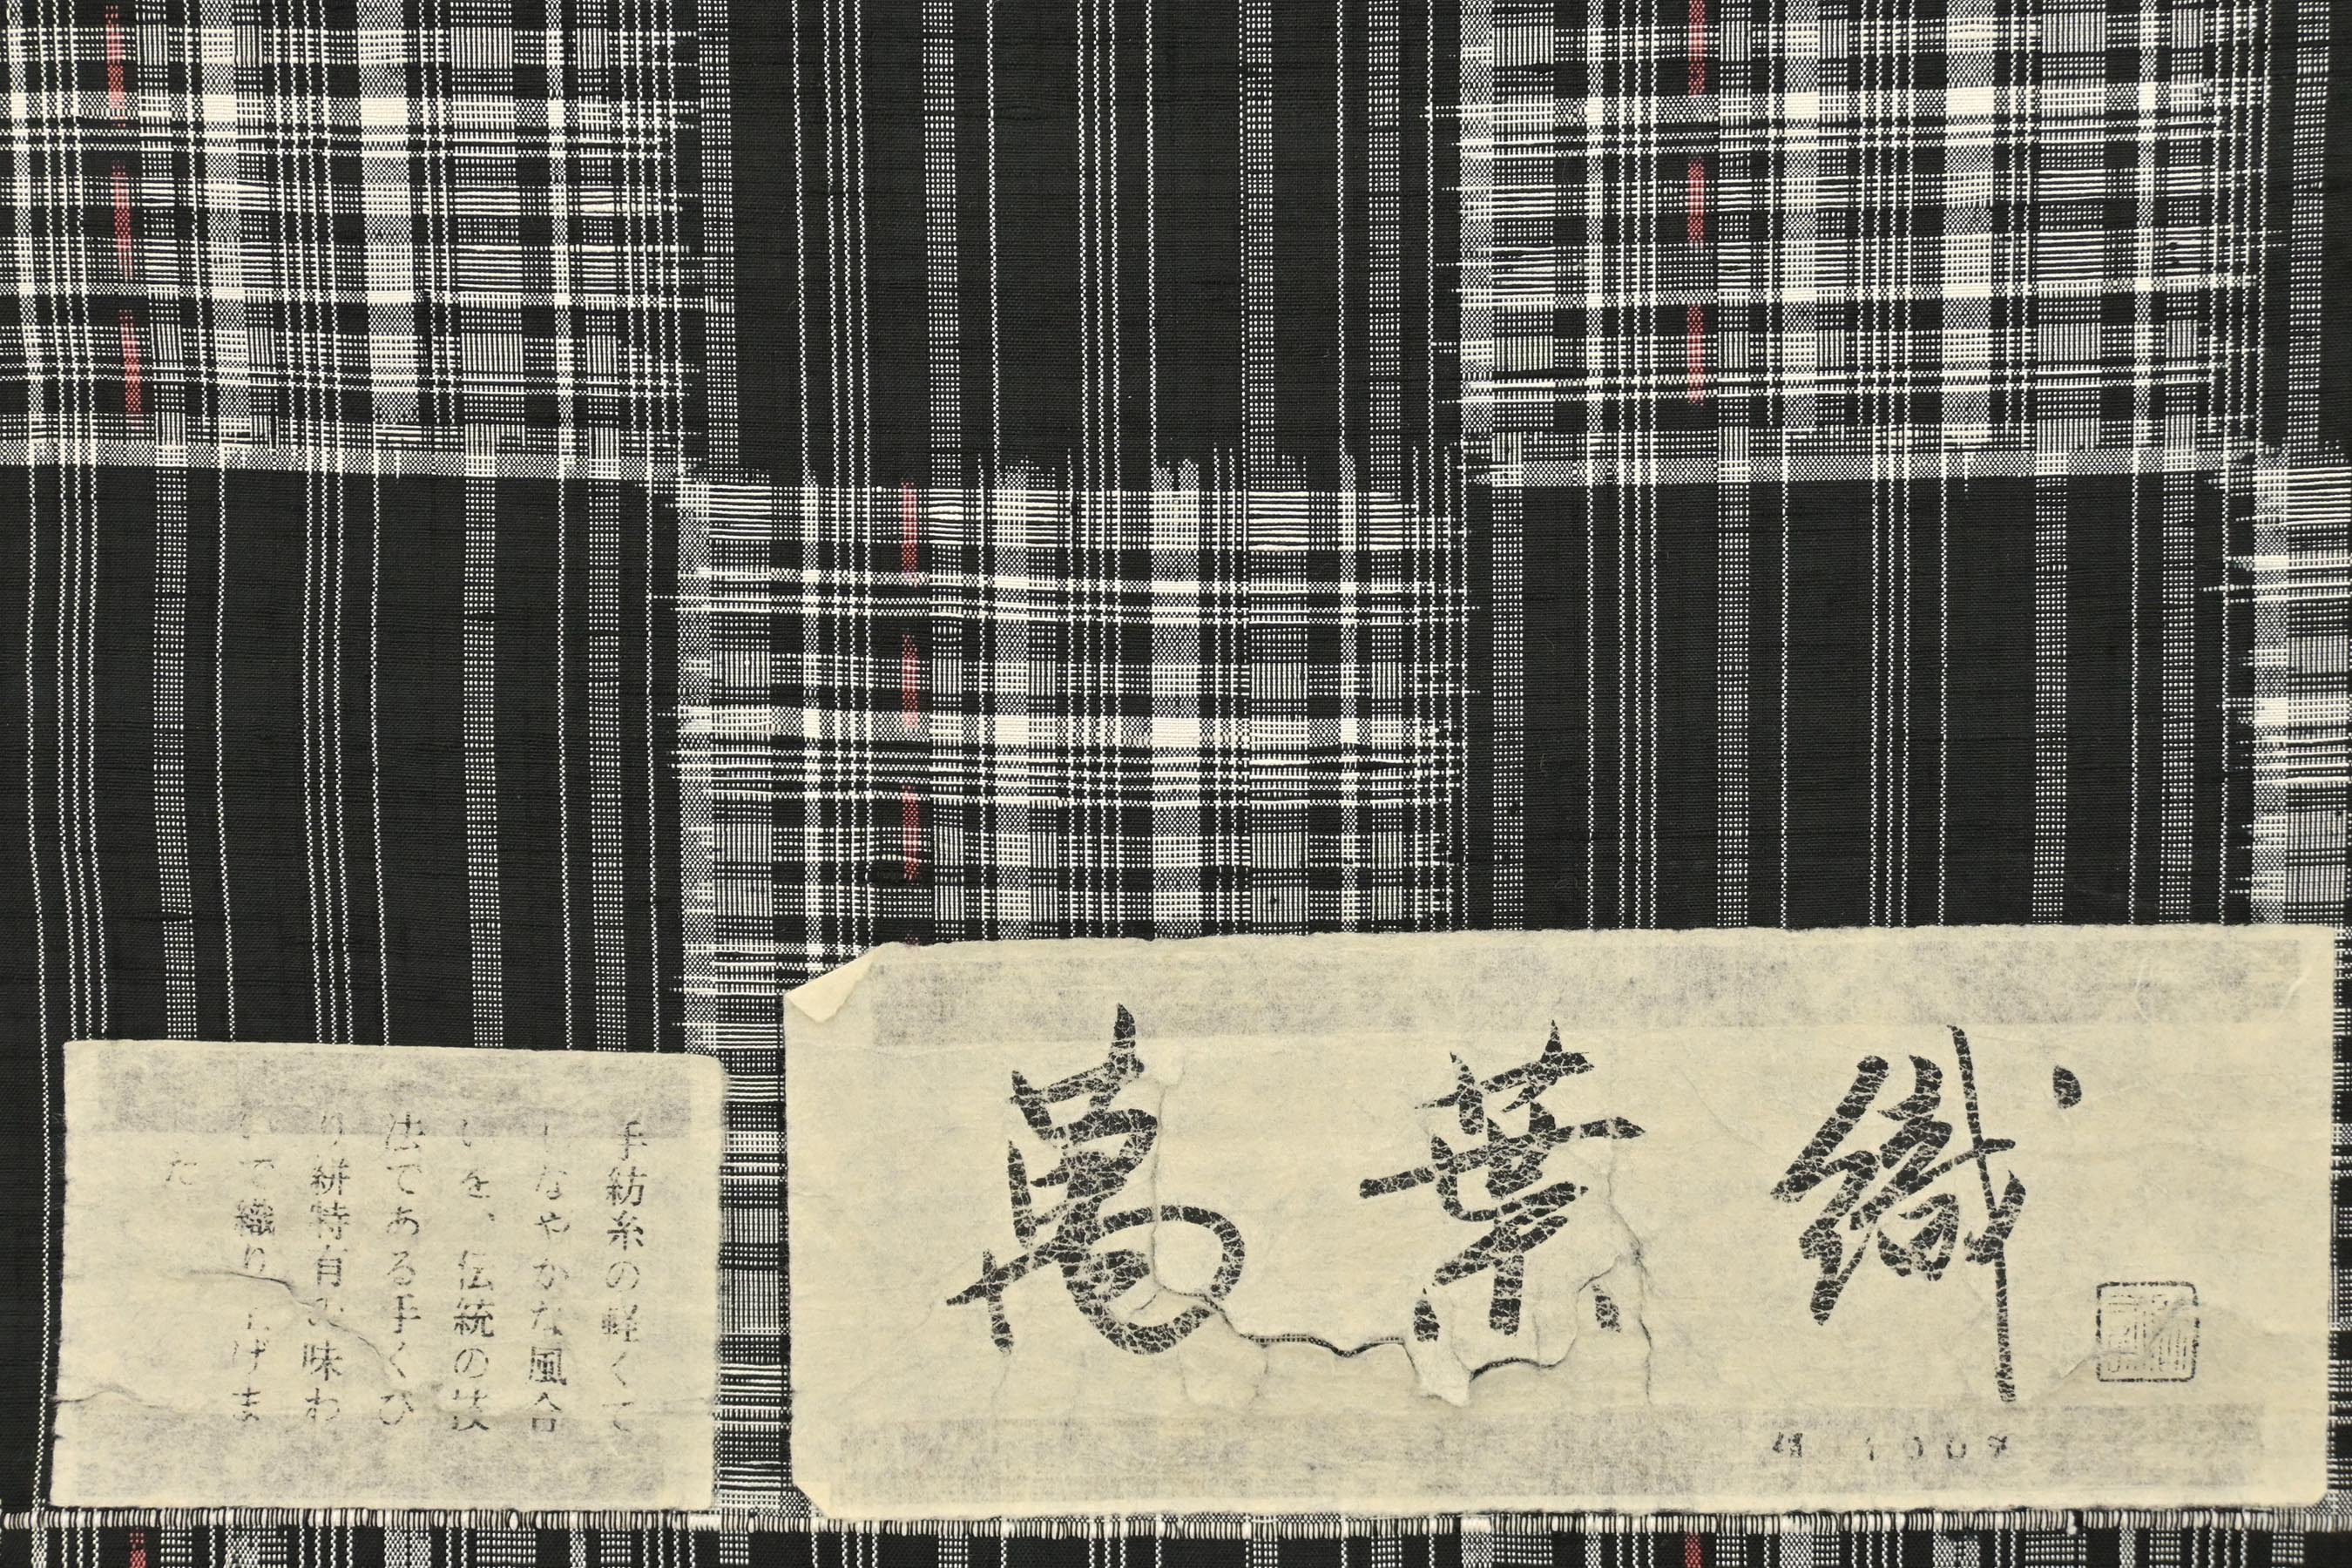 萬葉織
絹 100%
手紡糸の軽くて
しなやかな風合
いを、伝統の技
法である手くび
り絣特有の味わ
いで織り上げま
した